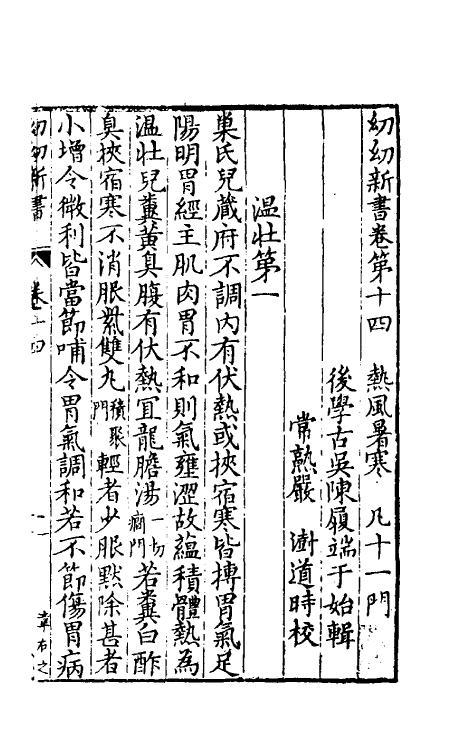 幼幼新書卷第十四　熱風暑寒　凡十一門
後學古吳陳履端于始輯
常熟嚴　澍道時校
温壯第一
巢氏兒藏府不調內有伏熱或挾宿寒皆搏胃氣足
陽明胃經主肌肉胃不和則氣壅澀故蘊積體熱為
温壯兒糞黃臭腹有伏熱冝龍膽湯一切癎門若糞白酢
臭挾宿寒不消服紫雙丸積聚門輕者少服黙除甚者
小增令微利皆當節哺令胃氣調和若不節傷胃病
幼幼新書　卷十四　一